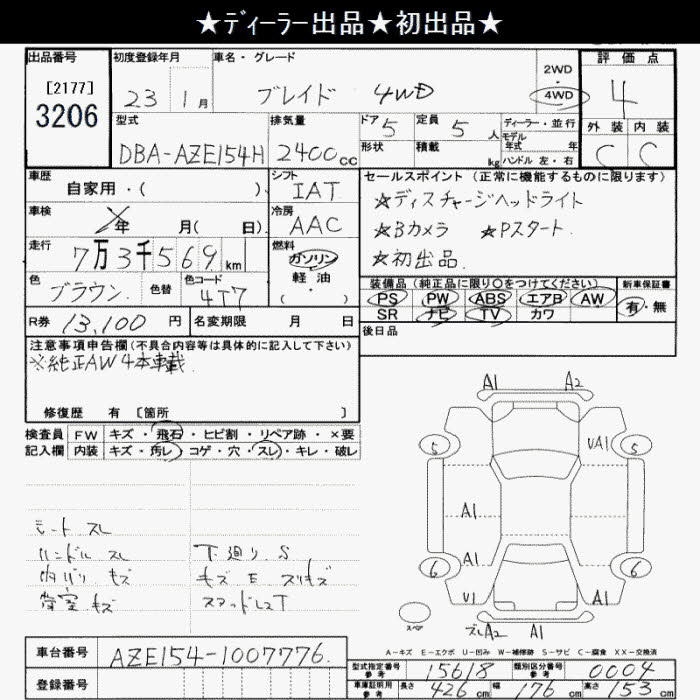 ★ディーラー出品★初出品★
出品番号 初度登録年月 車名・グレード 評価点
[2177]
3206
23 1月 ブレイド 4WD
2WD
4WD
4
型式 排気量 ドア 定員 ディーラー・並行 外装 内装
DBA-AZE154H 2400cc 5 5人
モデル年式 年
形状 積載 kg ハンドル 左・右
C C
車歴 シフト セールスポイント (正常に機能するものに限ります)
自家用・( ) IAT
☆ディスチャージヘッドライト
車検 冷房
年 月( 日) AAC
☆Bカメラ ☆Pスタート.
走行 燃料
7万3千569km ガソリン
☆初出品.
軽油
・( )
色 色替 色コード
ブラウン. 4T7
装備品 (純正品に限り〇をつけてください) 新車保証書
PS PW ABS エアB AW 有・無
SR ナビ TV カワ
R券 13,100 円 名変期限 月 日
後日品
注意事項申告欄 (不具合内容等は具体的に記入して下さい)
※純正AW4本載.
修復歴 有 [箇所 ]
検査員 FW キズ・飛石・ヒビ割・リペア跡・×要
記入欄 内装 キズ・汚レ・コゲ・穴・スレ・キレ・破レ
シート スレ
ハンドル スレ 下廻り S
内バリ キズ キズ E スリキズ
荷室 キズ
A1 A2
5 UA1 5
A1
A1
6 6
U1 A1
スペア ズレA2 A1
A-キズ E-エクボ U-凹み W-補修跡 S-サビ C-腐食 XX-交換済
車台番号 AZE154-1007776.
登録番号
型式指定番号 参考 15618 類別区分番号 参考 0004
車庫証明用 参考 長さ 426cm 幅 176cm 高さ 153cm